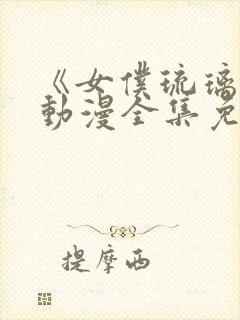 《女僕琉璃
動漫全集免
提摩西